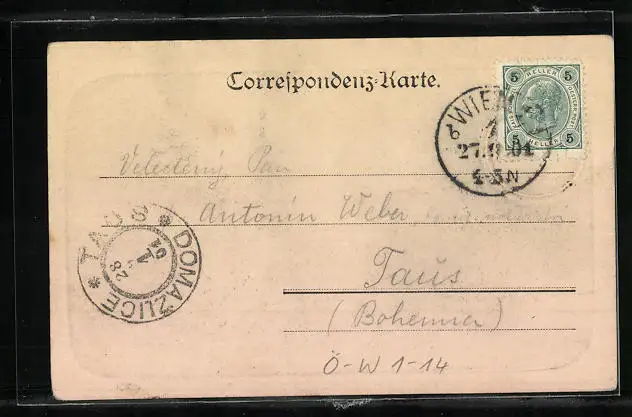 Correspondenz-Karte.
5 HELLER 5
5 HELLER 5
WIEN
27.9.01
4-5N
Velectěný Pan
Antonín Weber
Taus
(Bohemia)
TAUS * DOMAŽLICE *
Ö-W 1-14